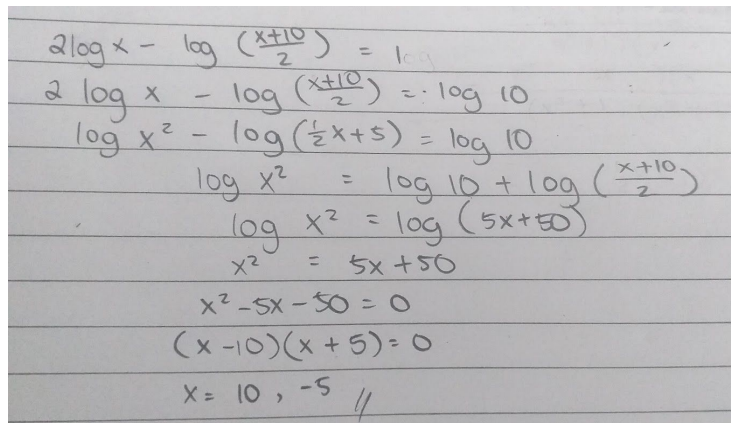 2logx - log (x+10/2) = 1
2 log x - log (x+10/2) = log 10
log x² - log (½x+5) = log 10
log x² = log 10 + log (x+10/2)
log x² = log (5x+50)
x² = 5x+50
x² -5x -50 = 0
(x -10)(x + 5) = 0
x = 10 , -5 //